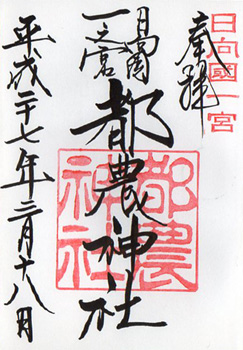 日向國一宮
奉拝
日向国
一之宮
都農神社
都農
神社
平成二十七年三月十八日